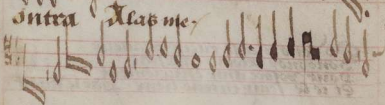 ontra Alas me